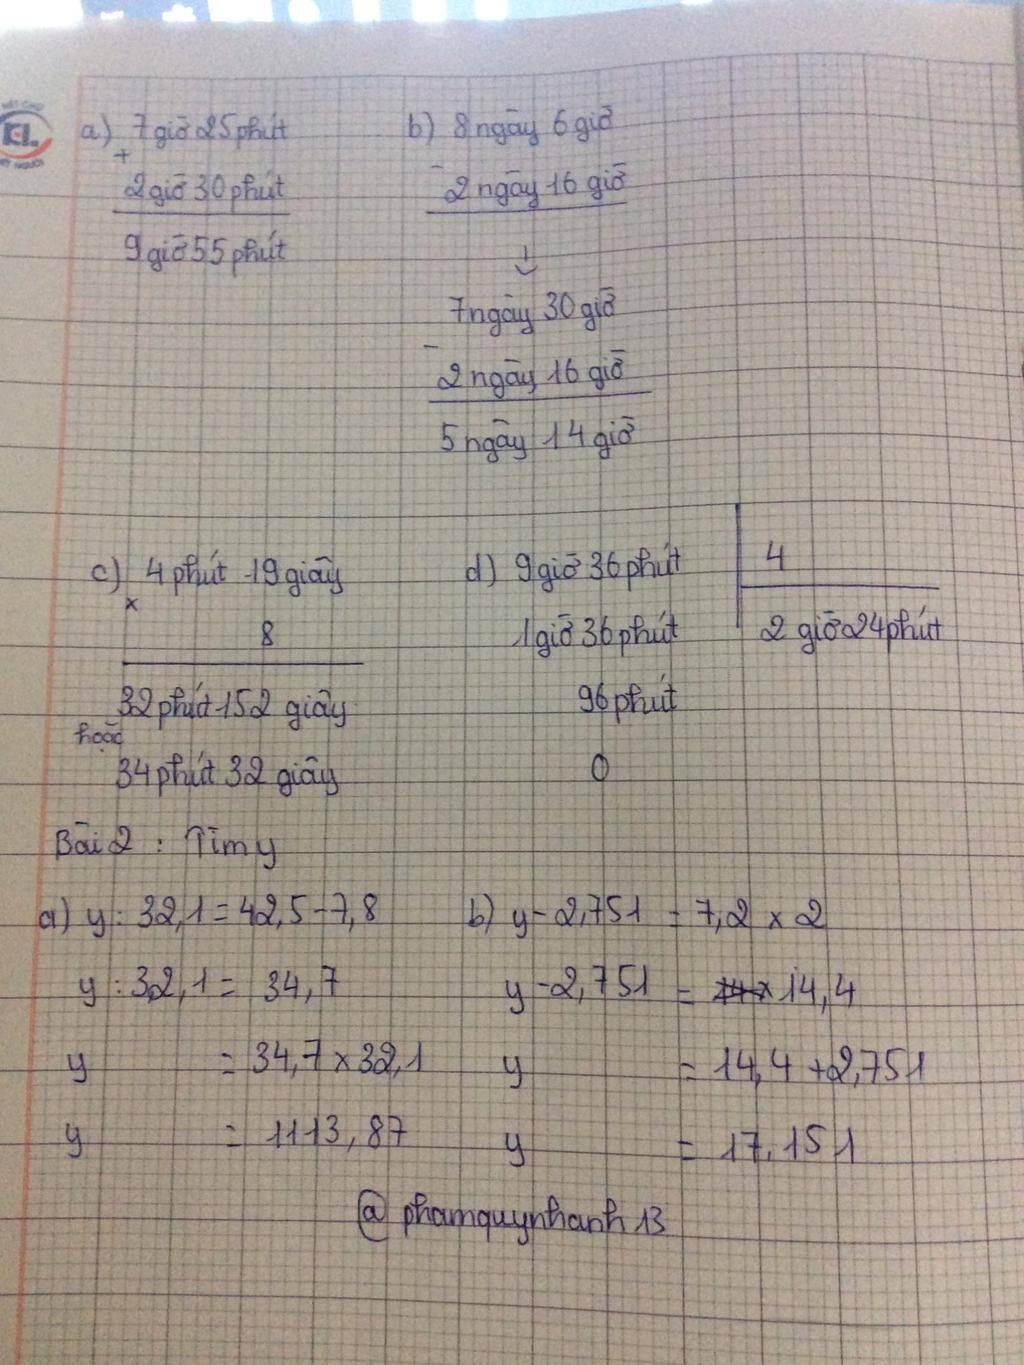 a) 7 giờ 25 phút
+
2 giờ 30 phút
9 giờ 55 phút
b) 8 ngày 6 giờ
-
2 ngày 16 giờ
↓
7 ngày 30 giờ
-
2 ngày 16 giờ
5 ngày 14 giờ
c) 4 phút 19 giây
×
8
32 phút 152 giây
hoặc
34 phút 32 giây
d) 9 giờ 36 phút | 4
1 giờ 36 phút | 2 giờ 24 phút
96 phút
0
Bài 2 : Tìm y
a) y : 32,1 = 42,5 - 7,8
y : 32,1 = 34,7
y = 34,7 × 32,1
y = 1113,87
b) y - 2,751 = 7,2 × 2
y - 2,751 = 14,4
y = 14,4 + 2,751
y = 17,151
@ phamquynhanh 13